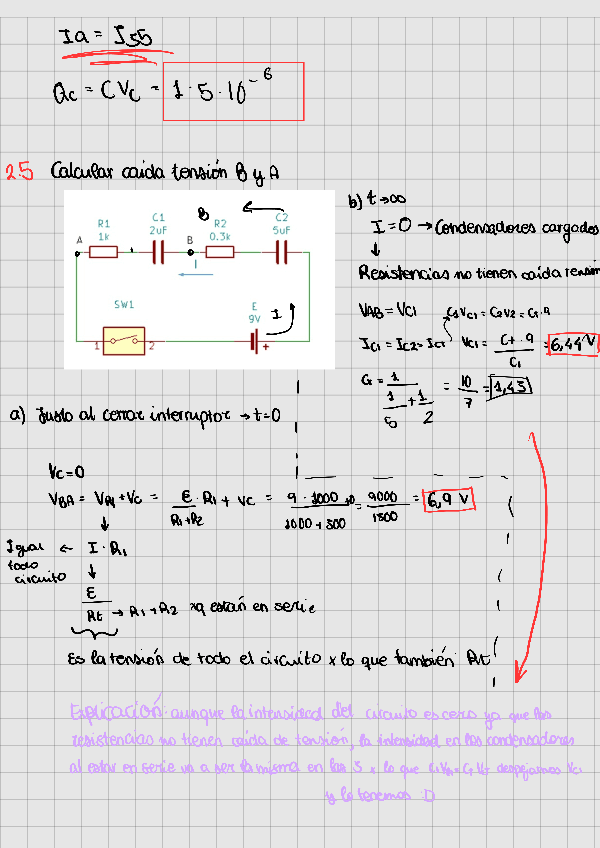 Ia = I35
Qc = CVc = 1·5·10⁻⁶
2.5 Calcular caida tensión B y A
B
C1
2uF
C2
5uF
R1
1k
R2
0.3k
A
B
I
SW1
E
9V
I
1
2
+
b) t→∞
I = 0 → Condensadores cargados
↓
Resistencias no tienen caída tensión
VAB = VC1
C1VC1 = C2V2 = Ct·9
IC1 = IC2 = ICT
VC1 = Ct·9 / C1 = 6,44 V
Ct = 1 / (1/5 + 1/2) = 10/7 = 1,43
a) Justo al cerrar interruptor → t=0
Vc=0
VBA = VR1 + Vc = E/(R1+R2) · R1 + Vc = 9·1000/(1000+300) + 0 = 9000/1300 = 6,9 V
↓
Igual todo circuito ← I·R1
↓
E/Rt → R1+R2 xq están en serie
Es la tensión de todo el circuito x lo que también Rt
Explicación: aunque la intensidad del circuito es cero ya que las
resistencias no tienen caida de tensión, la intensidad en los condensadores
al estar en serie va a ser la misma en los 3 x lo que despejamos VC1
y lo tenemos :D